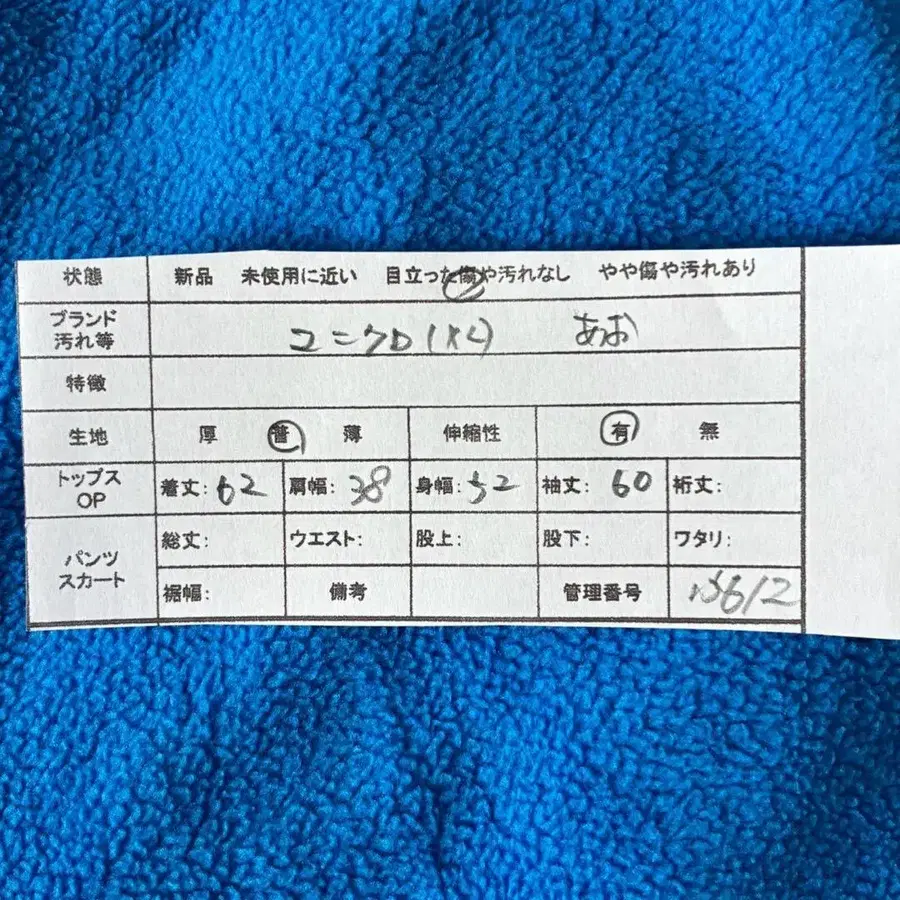 状態 新品 未使用に近い 目立った傷や汚れなし やや傷や汚れあり
ブランド 汚れ等 ユニクロ(XL) あお
特徴
生地 厚 普 薄 伸縮性 有 無
トップス OP 着丈:62 肩幅:38 身幅:52 袖丈:60 裄丈:
パンツ スカート 総丈: ウエスト: 股上: 股下: ワタリ:
裾幅: 備考 管理番号 612